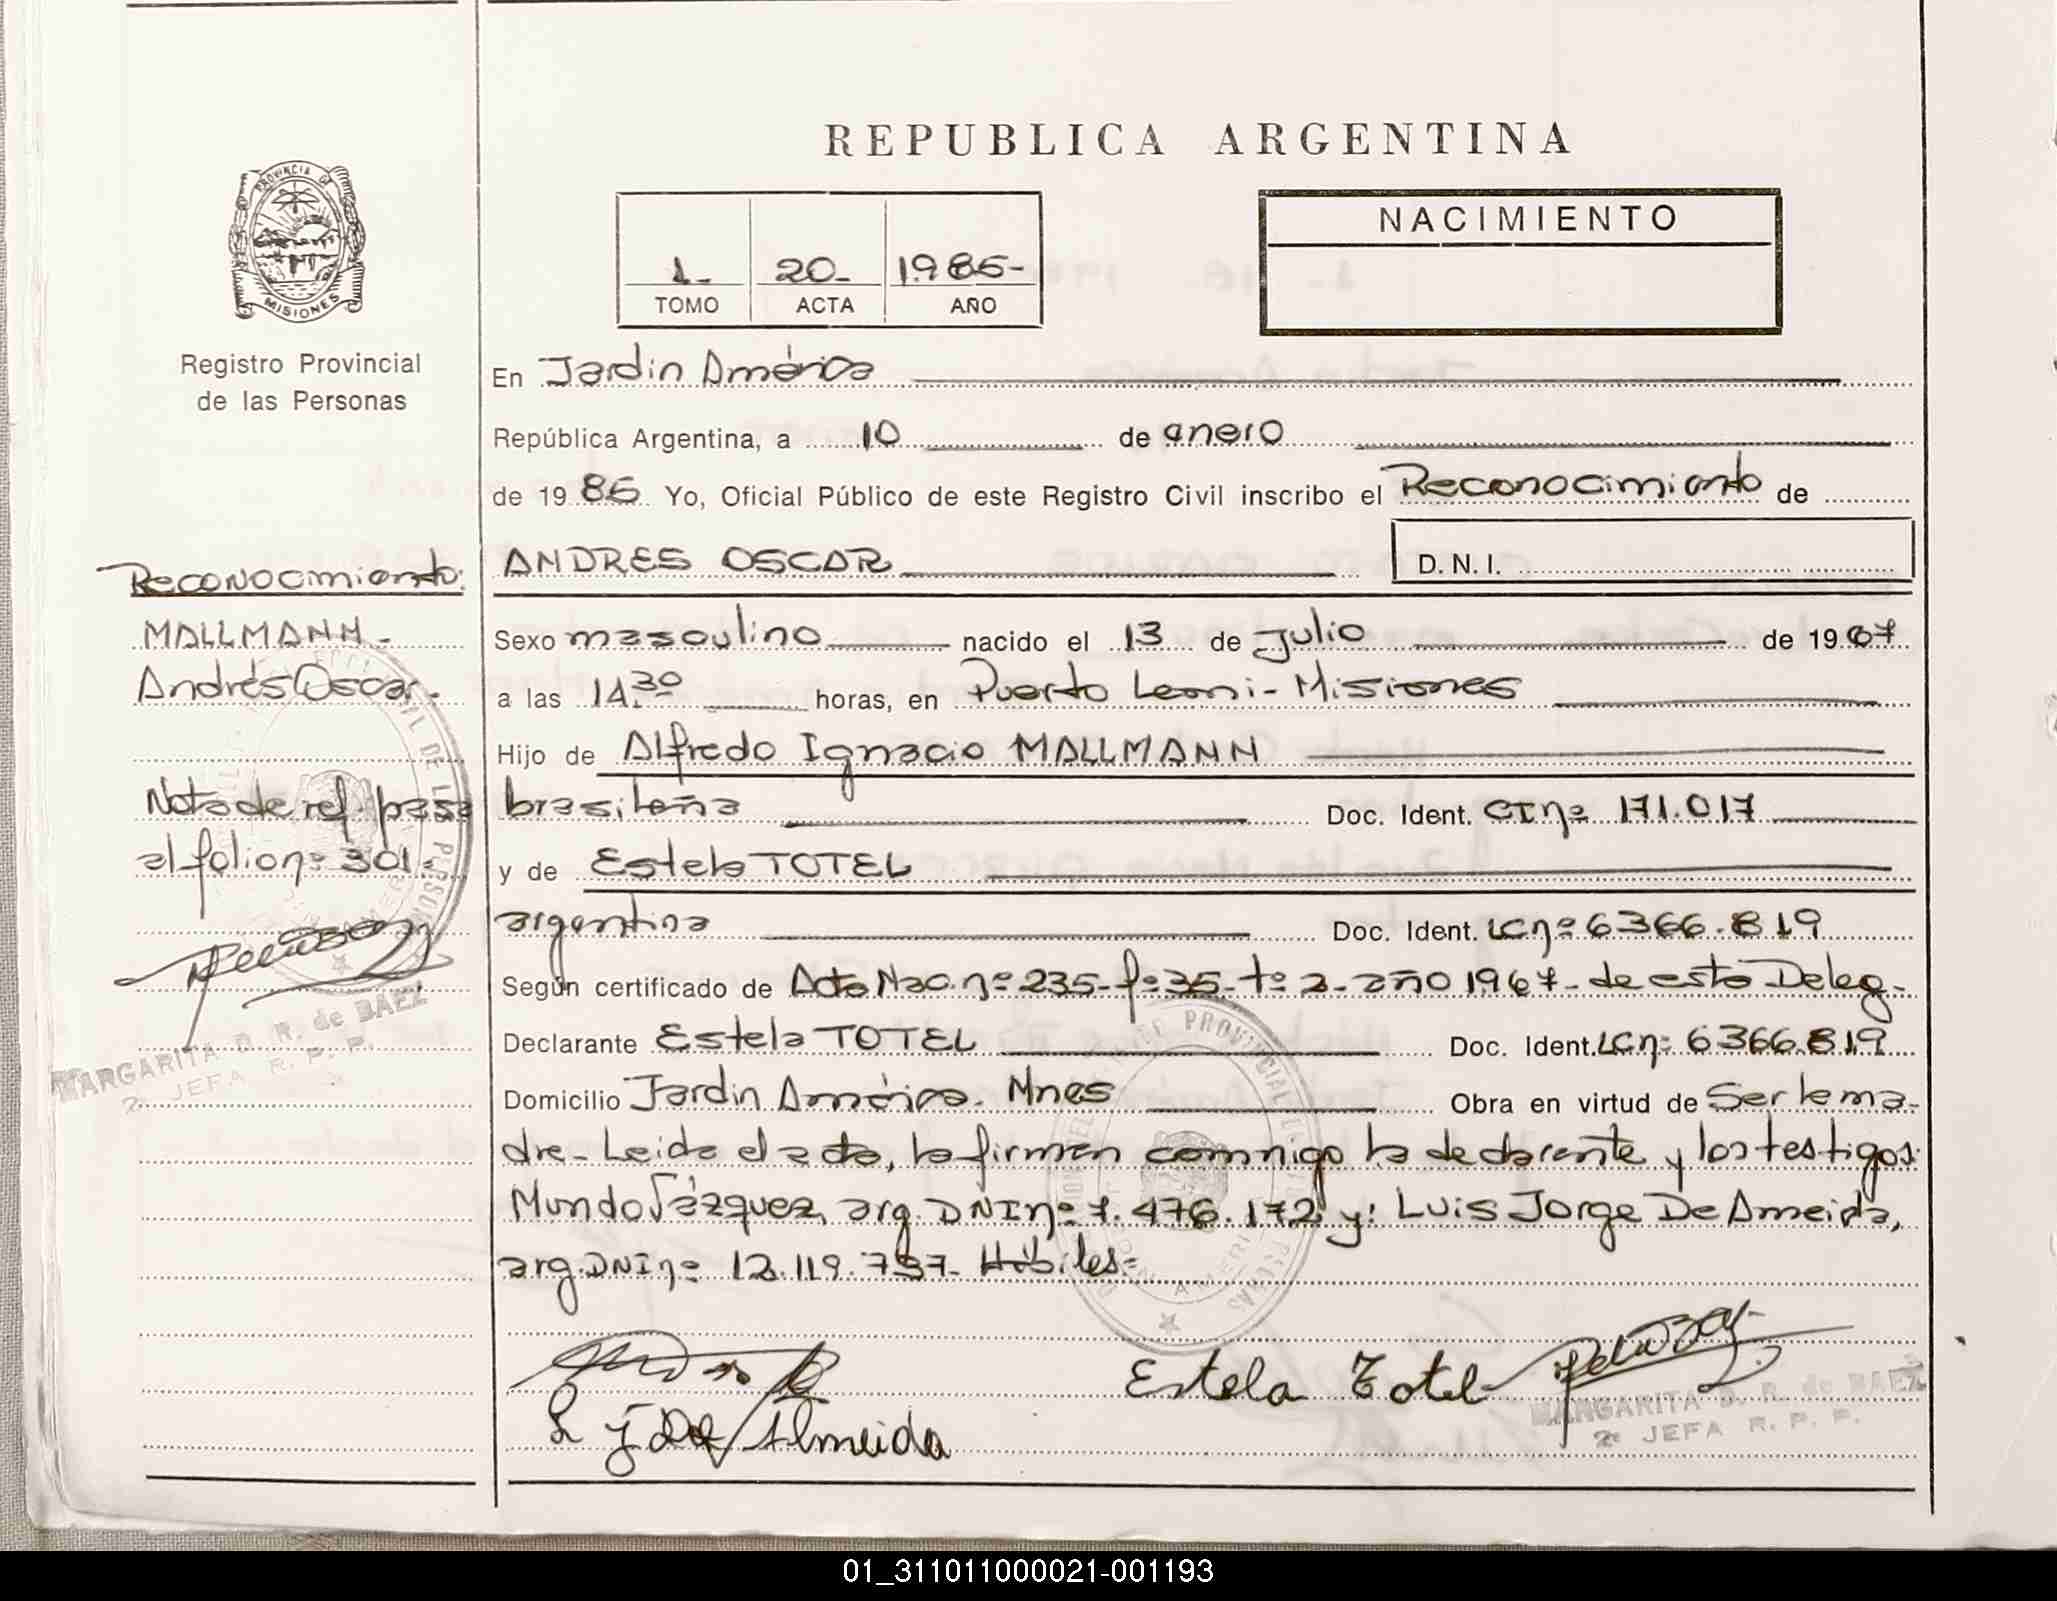 REPUBLICA ARGENTINA
PROVINCIA DE MISIONES
Registro Provincial
de las Personas
1- 20- 1985-
TOMO ACTA AÑO
NACIMIENTO
En Jardin América
República Argentina, a 10 de enero
de 1985 Yo, Oficial Público de este Registro Civil inscribo el Reconocimiento de
ANDRES OSCAR D. N. I.
Sexo masculino nacido el 13 de Julio de 1967
a las 14.30 horas, en Puerto Leoni-Misiones
Hijo de Alfredo Ignacio MALLMANN
brasileña Doc. Ident. CI nº 171.017
y de Estela TOTEL
argentina Doc. Ident. LC nº 6366.819
Según certificado de Acta Nac. nº 235-fº 35-tº 2-año 1967-de esta Deleg-
Declarante Estela TOTEL Doc. Ident. LC nº 6366.819
Domicilio Jardin América. Mnes Obra en virtud de Ser la ma-
dre-Leida el acta, la firman conmigo la declarante y los testigos:
Mundo Vázquez, arg. DNI nº 7.476.172 y: Luis Jorge De Ameida,
arg. DNI nº 12.119.737- Hábiles-
Estela Totel
L J De Almeida
MARGARITA D. R. de BAEZ
2ª JEFA R. P. P.
Reconocimiento:
MALLMANN-
Andrés Oscar-
Nota de ref. pasa
al folio nº 301.
MARGARITA D. R. de BAEZ
2ª JEFA R. P. P.
01_311011000021-001193